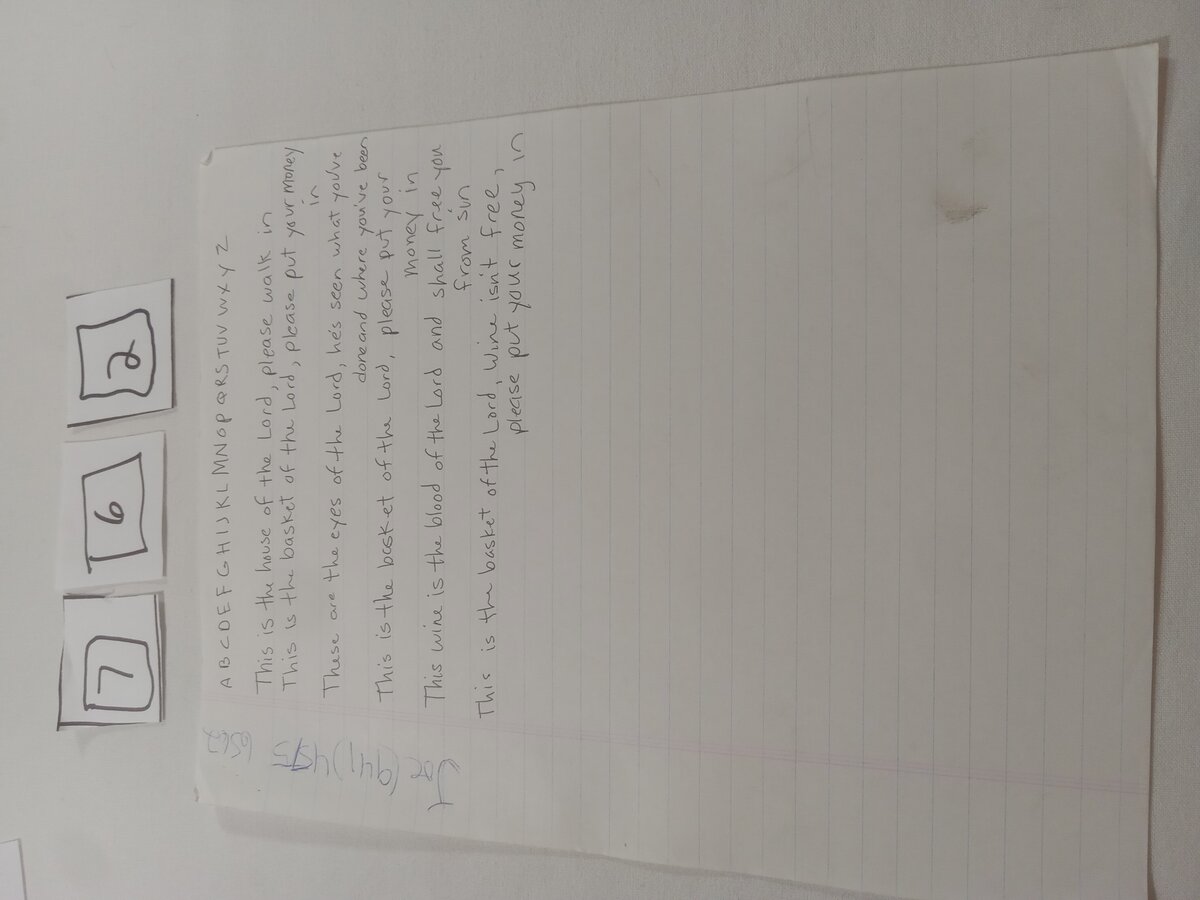 7 6 2
A B C D E F G H I J K L M N O P Q R S T U V W X Y Z
This is the house of the Lord, please walk in
This is the basket of the Lord, please put your money
in
These are the eyes of the Lord, he's seen what you've
done and where you've been
This is the basket of the Lord, please put your
money in
This wine is the blood of the Lord and shall free you
from sin
This is the basket of the Lord, Wine isn't free,
please put your money in
Joe (941) 4515
6562